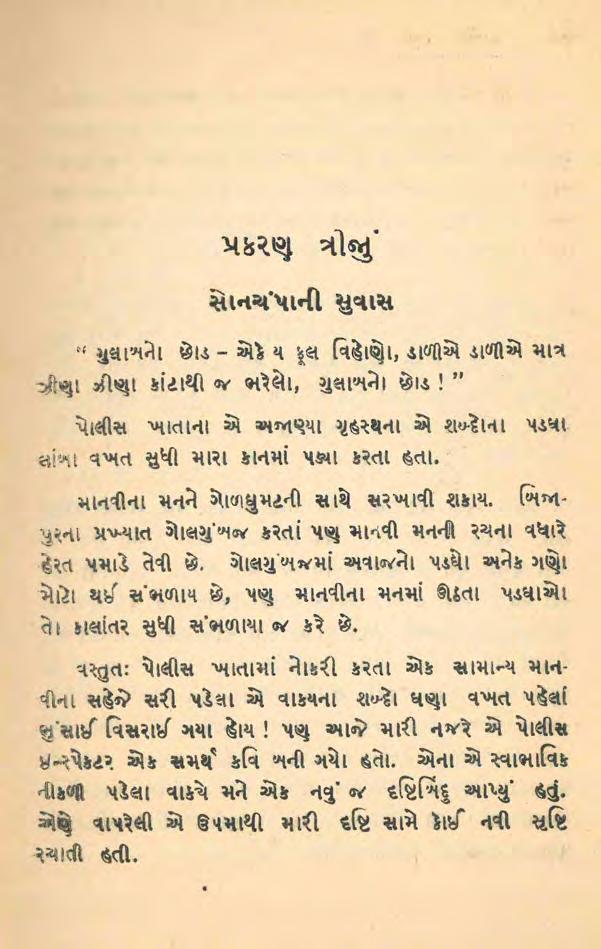 પ્રકરણ ત્રીજું
સોનચંપાની સુવાસ
“ ગુલાબનો છોડ – એકે ય ફૂલ વિહોણો, ડાળીએ ડાળીએ માત્ર
ઝીણા ઝીણા કાંટાથી જ ભરેલો, ગુલાબનો છોડ ! ”
પોલીસ ખાતાના એ અજાણ્યા ગૃહસ્થના એ શબ્દોના પડઘા
લાંબા વખત સુધી મારા કાનમાં પડ્યા કરતા હતા.
માનવીના મનને ગોળઘુમટની સાથે સરખાવી શકાય. બિજા-
પુરના પ્રખ્યાત ગોલગુંબજ કરતાં પણ માનવી મનની રચના વધારે
હેરત પમાડે તેવી છે. ગોલગુંબજમાં અવાજનો પડઘો અનેક ગણો
મોટો થઈ સંભળાય છે, પણ માનવીના મનમાં ઊઠતા પડઘાઓ
તો કાલાંતર સુધી સંભળાયા જ કરે છે.
વસ્તુતઃ પોલીસ ખાતામાં નોકરી કરતા એક સામાન્ય માન-
વીના સહેજે સરી પડેલા એ વાક્યના શબ્દો ઘણા વખત પહેલાં
ભુંસાઈ વિસરાઈ ગયા હોય ! પણ આજે મારી નજરે એ પોલીસ
ઇન્સ્પેકટર એક સમર્થ કવિ બની ગયો હતો. એના એ સ્વાભાવિક
નીકળી પડેલા વાક્યે મને એક નવું જ દૃષ્ટિબિંદુ આપ્યું હતું.
એણે વાપરેલી એ ઉપમાથી મારી દૃષ્ટિ સામે કોઈ નવી સૃષ્ટિ
રચાતી હતી.